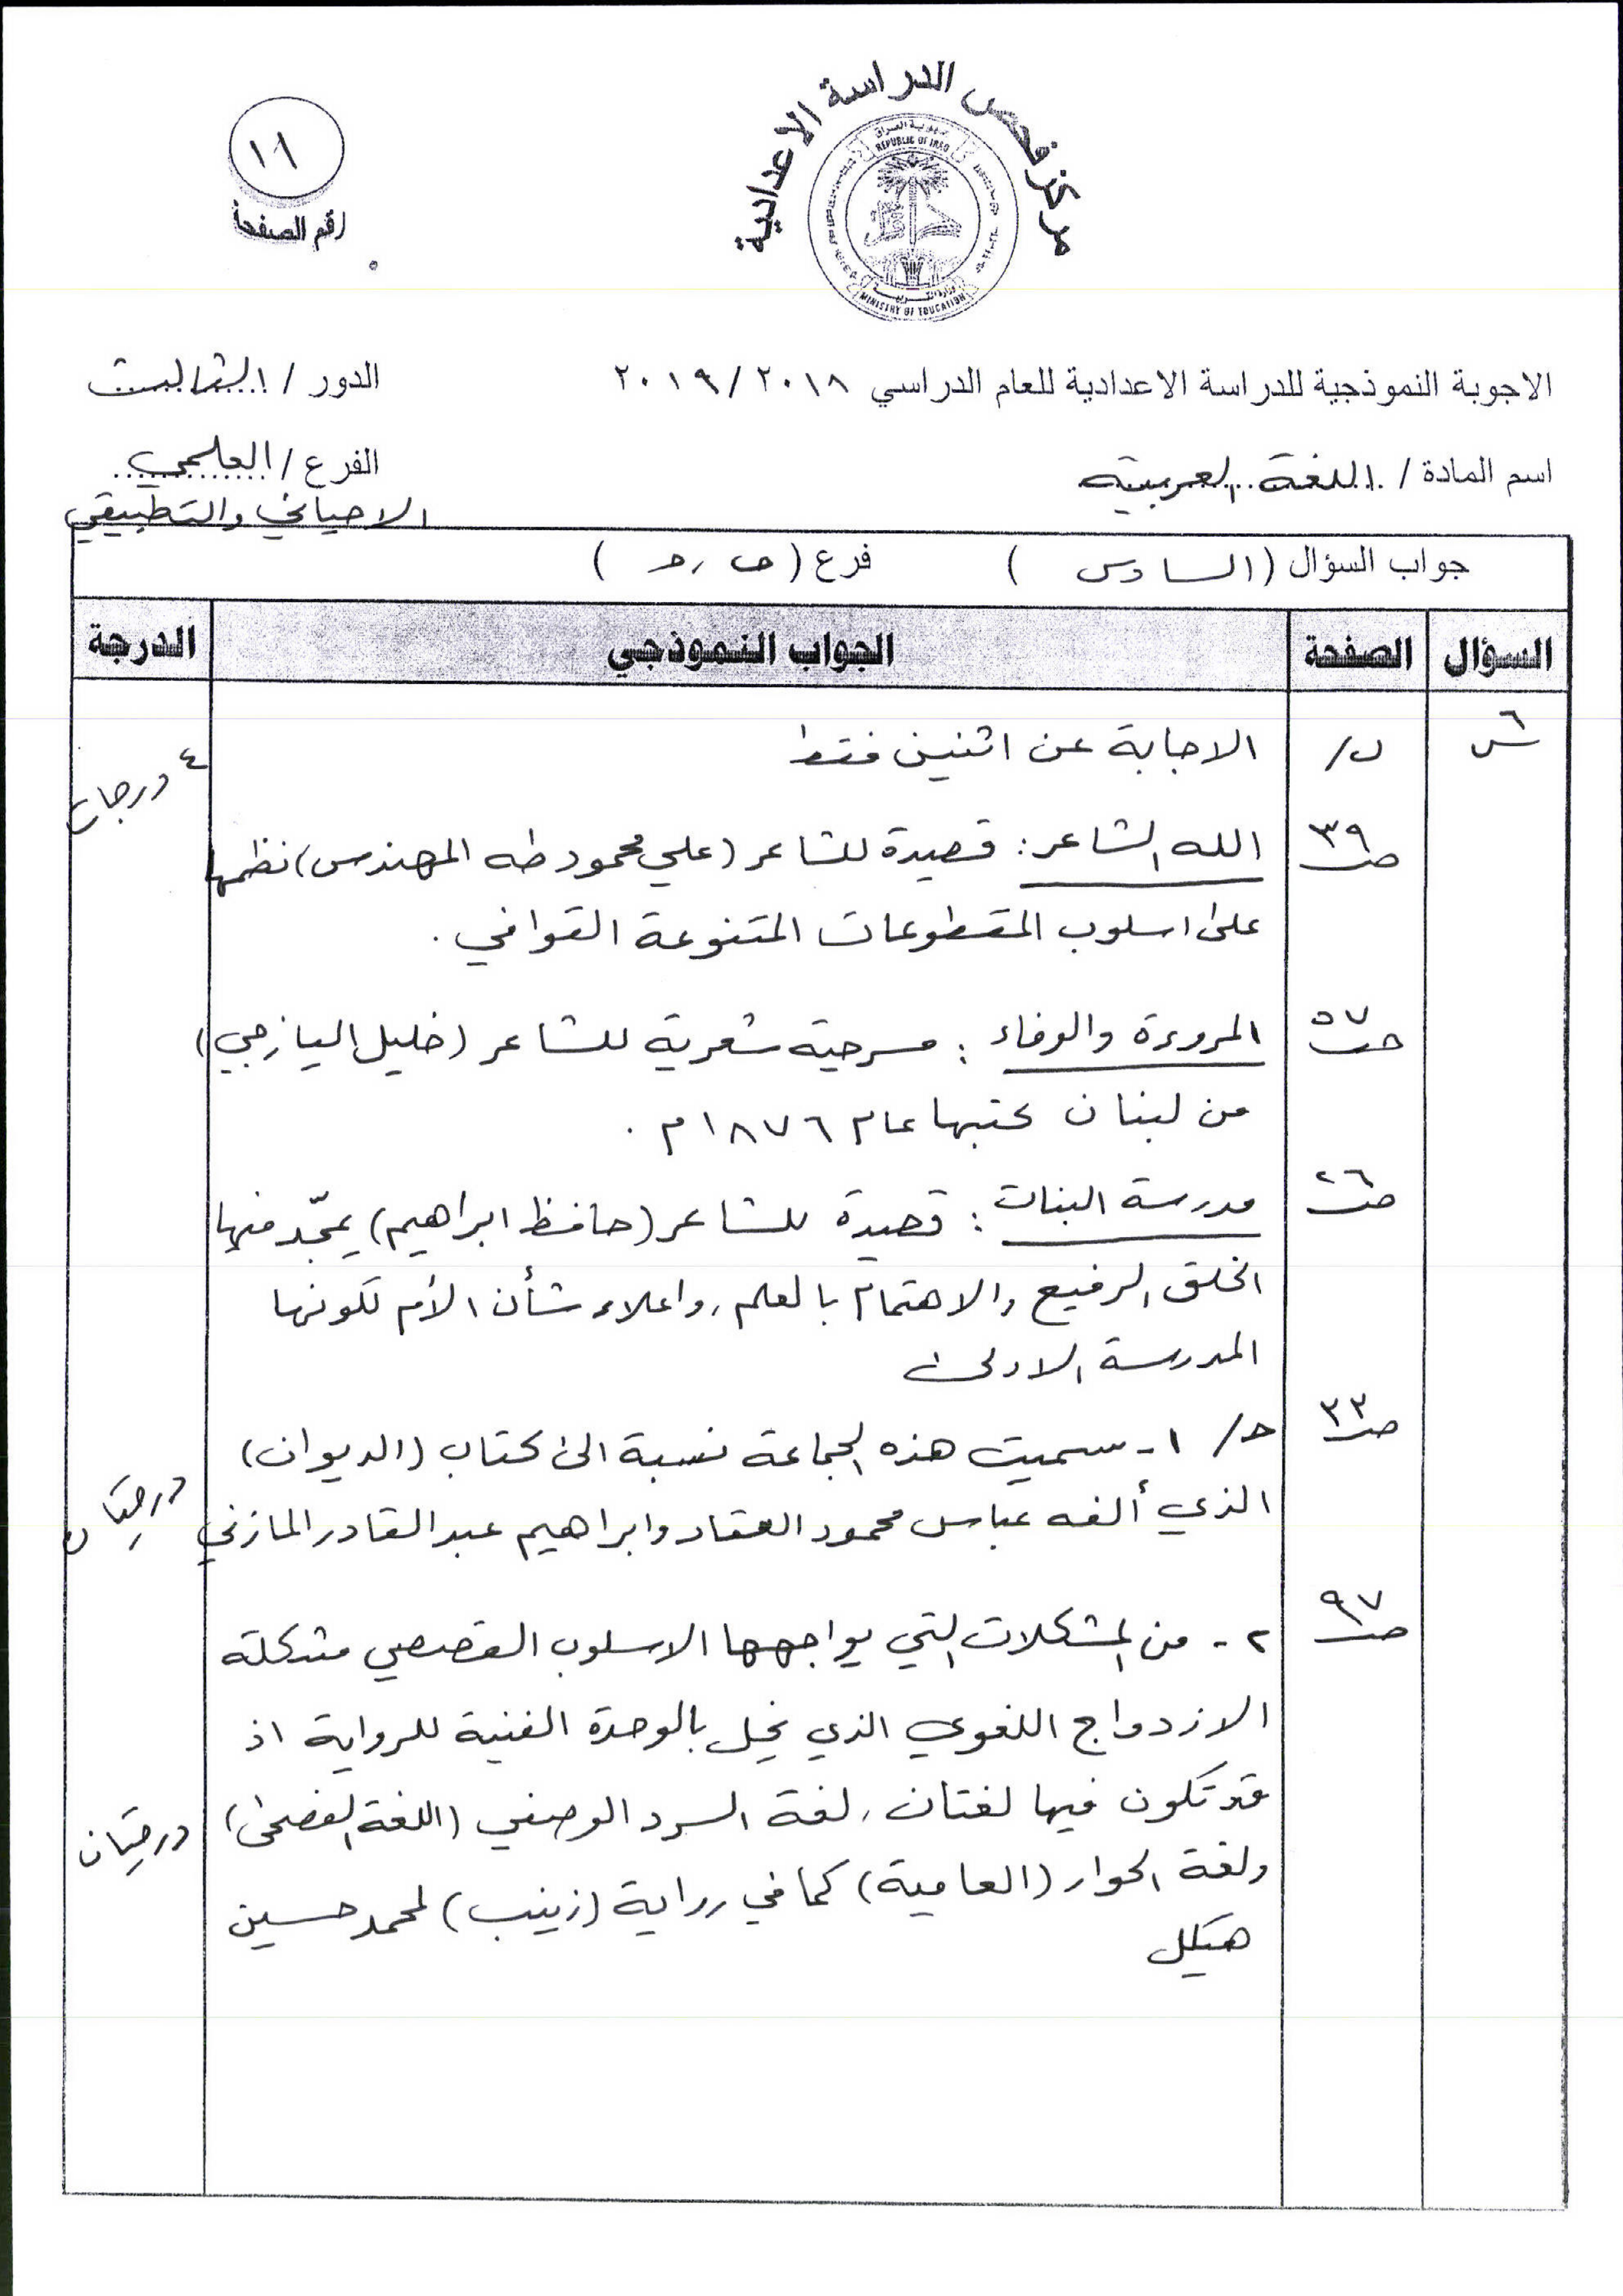 مركز فحص الدراسة الاعدادية
جمهورية العراق
REPUBLIC OF IRAQ
وزارة التربية
MINISTRY OF EDUCATION
١١
رقم الصفحة
الاجوبة النموذجية للدراسة الاعدادية للعام الدراسي ٢٠١٨/٢٠١٩
الدور / الثالث
اسم المادة / اللغة العربية
الفرع / العلمي
الاحيائي والتطبيقي
جواب السؤال (السادس) فرع (ب، ج)
السؤال الصفحة الجواب النموذجي الدرجة
س٦ ب/ الاجابة عن اثنين فقط ٤ درجات
ص٣٩ الله والشاعر: قصيدة للشاعر (علي محمود طه المهندس) نظمها
على اسلوب المقطوعات المتنوعة القوافي.
ص٥٧ المروءة والوفاء: مسرحية شعرية للشاعر (خليل اليازجي)
من لبنان كتبها عام ١٨٧٦م.
ص٢٦ مدرسة البنات: قصيدة للشاعر (حافظ ابراهيم) يمجّد فيها
الخلق الرفيع والاهتمام بالعلم، واعلاء شأن الأم لكونها
المدرسة الاولى
ص٣٣ ج/ ١- سميت هذه الجماعة نسبة الى كتاب (الديوان)
الذي ألفه عباس محمود العقاد وابراهيم عبد القادر المازني درجتان
ص٩٧ ٢- من المشكلات التي يواجهها الاسلوب القصصي مشكلة
الازدواج اللغوي الذي يخل بالوحدة الفنية للرواية اذ
قد تكون فيها لغتان، لغة السرد الوصفي (اللغة الفصحى) درجتان
ولغة الحوار (العامية) كما في رواية (زينب) لمحمد حسين
هيكل